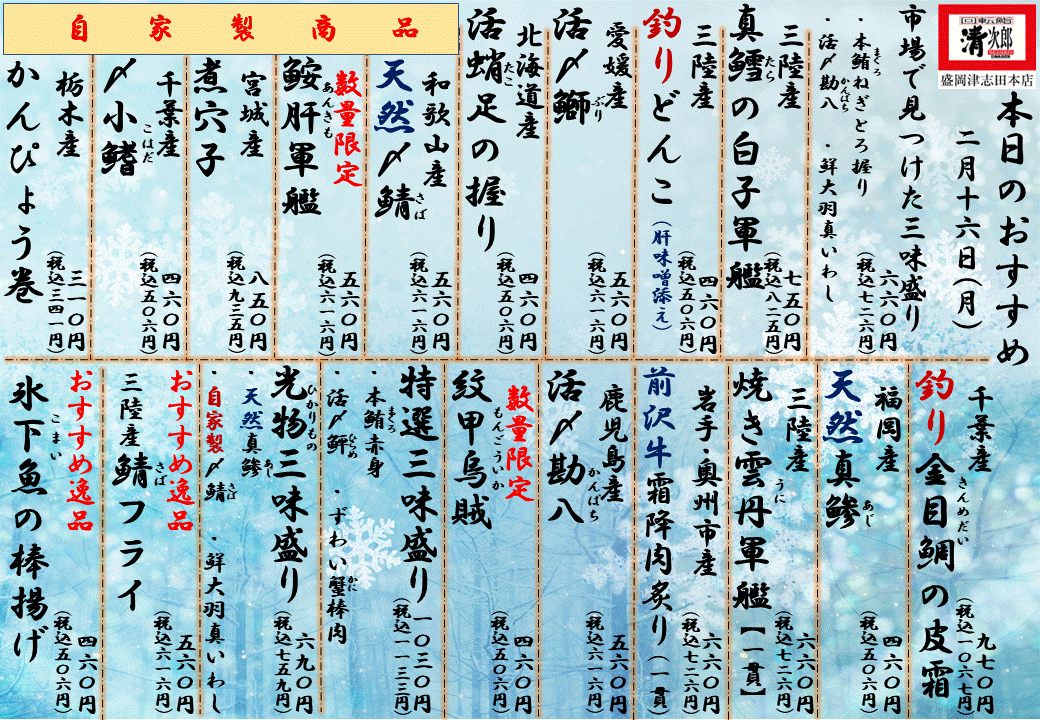 回転鮨
清次郎
盛岡津志田本店
本日のおすすめ
二月十六日(月)
市場で見つけた三味盛り
六六〇円
(税込七二六円)
・本鮪ねぎとろ握り
まぐろ
・活〆勘八
かんぱち
・鮮大羽真いわし
三陸産
真鱈の白子軍艦
たら
七五〇円
(税込八二五円)
三陸産
釣りどんこ
(肝味噌添え)
四六〇円
(税込五〇六円)
愛媛産
活〆鰤
ぶり
五六〇円
(税込六一六円)
北海道産
活蛸足の握り
たこ
四六〇円
(税込五〇六円)
和歌山産
天然〆鯖
さば
五六〇円
(税込六一六円)
自家製商品
数量限定
鮟肝軍艦
あんきも
五六〇円
(税込六一六円)
宮城産
煮穴子
八五〇円
(税込九三五円)
千葉産
〆小鰭
こはだ
四六〇円
(税込五〇六円)
栃木産
かんぴょう巻
三一〇円
(税込三四一円)
千葉産
釣り金目鯛の皮霜
きんめだい
九七〇円
(税込一〇六七円)
福岡産
天然真鯵
あじ
四六〇円
(税込五〇六円)
三陸産
焼き雲丹軍艦【一貫】
うに
六六〇円
(税込七二六円)
岩手・奥州市産
前沢牛霜降肉炙り(一貫)
六六〇円
(税込七二六円)
鹿児島産
活〆勘八
かんぱち
五六〇円
(税込六一六円)
数量限定
紋甲烏賊
もんごういか
四六〇円
(税込五〇六円)
特選三味盛り
一〇三〇円
(税込一一三三円)
・本鮪赤身
まぐろ
・活〆鮃
ひらめ
・ずわい蟹棒肉
かに
光物三味盛り
ひかりもの
六九〇円
(税込七五九円)
・天然真鯵
あじ
・自家製〆鯖
さば
・鮮大羽真いわし
おすすめ逸品
三陸産鯖フライ
さば
五六〇円
(税込六一六円)
おすすめ逸品
氷下魚の棒揚げ
こまい
四六〇円
(税込五〇六円)